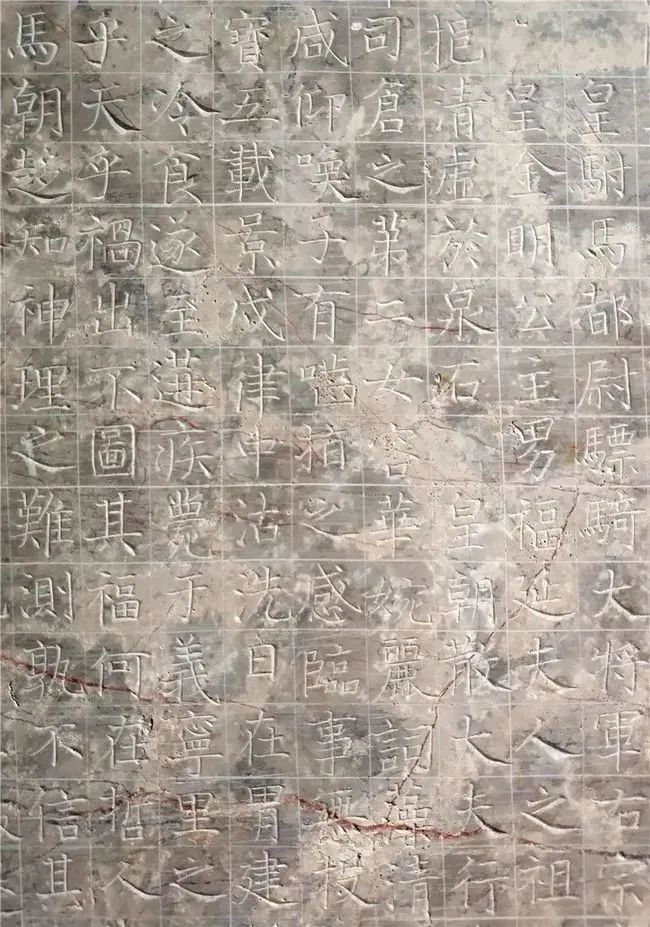 皇駙馬都尉驃騎大將軍右宗
皇金明公主男福延夫人之祖
挹清虛於泉石皇朝散大夫行
司倉之第二女容華婉麗詞藻清
咸仰喚子有嚙指之感臨事無投
寶五載景戌律中沽洗日在胃建
之冷食遂至遘疾薨于義寧里之
乎天乎禍出不圖其福何在哲人
馬朝趍知神理之難測孰不信其